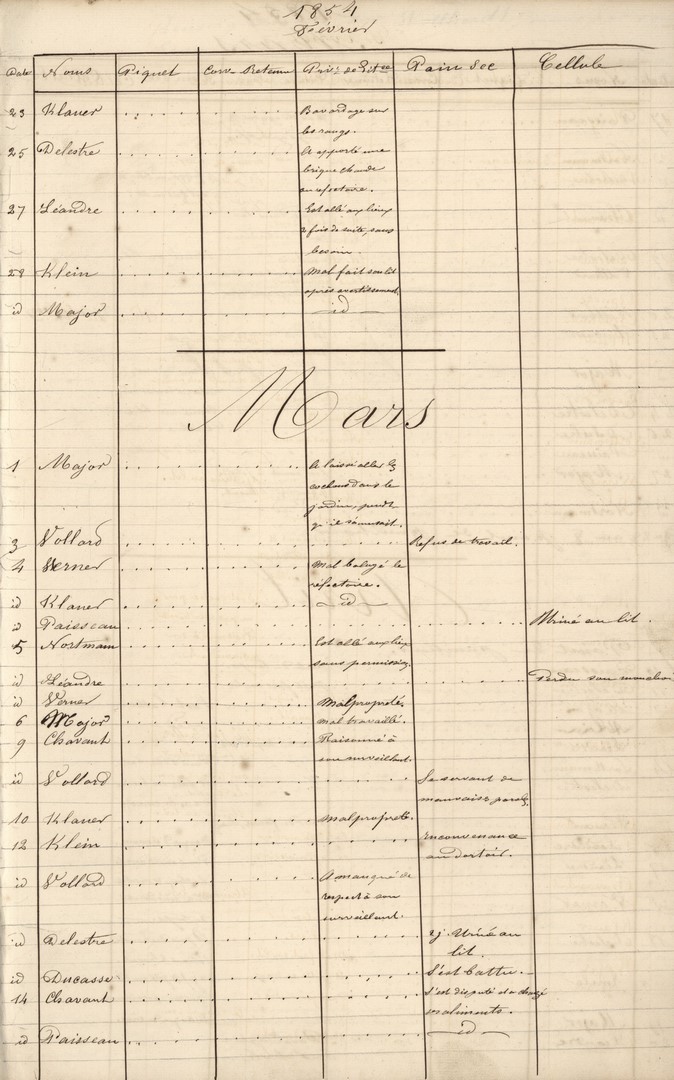 1854
Février
Date Noms Piquet Corv. Retenue Priv. de Pitce Pain Sec Cellule
23 Klauer Bavardage sur
les rangs.
25 Delestre A apporté une
brique chaude
au refectoire.
27 Léandre Est allé aux lieux
2 fois de suite, sans
besoin.
28 Klein Mal fait son lit
après avertissement.
id Major id
Mars
1 Major A laissé aller les
cochons dans le
jardin, pendt
qu'il s'amusait.
3 Vollard Refus de travail.
4 Verner Mal balayé le
réfectoire.
id Klauer id
id Paisseau Uriné au lit.
5 Nortmann Est allé aux lieux
sans permission.
id Léandre Perdu son mouchoir
id Verner Malpropreté.
6 Major Mal travaillé.
9 Chavant Raisonné à
son surveillant.
id Vollard Se servant de
mauvaises paroles
10 Klauer Malpropreté.
12 Klein Inconvenance
au dortoir.
id Vollard A manqué de
respect à son
surveillant.
id Delestre 2j. Uriné au
lit.
id Ducasse S'est battu.
14 Chavant S'est disputé et a changé
ses aliments.
id Paisseau id